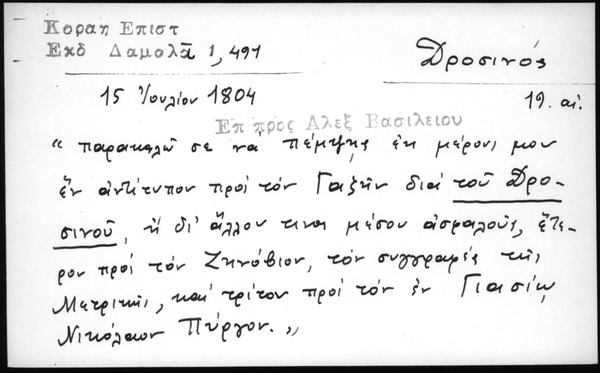 Κοραη Επιστ
Εκδ Δαμαλᾶ 1, 491
Δροσινός
15 Ἰουλίου 1804
19. αἰ.
Επ προς Αλεξ Βασιλειου
"παρακαλῶ σε να πέμψῃς ἐκ μέρους μου
ἓν ἀντίτυπον πρὸς τὸν Γαζῆν διὰ τοῦ Δρο-
σινοῦ, ἢ δι' ἄλλου τινος μέσου ἀσφαλοῦς, ἕτε-
ρον πρὸς τὸν Ζηνόβιον, τὸν συγγραφέα τῆς
Μετρικῆς, καὶ τρίτον πρὸς τὸν ἐν Γιασίῳ
Νικόλαον Πύργον."